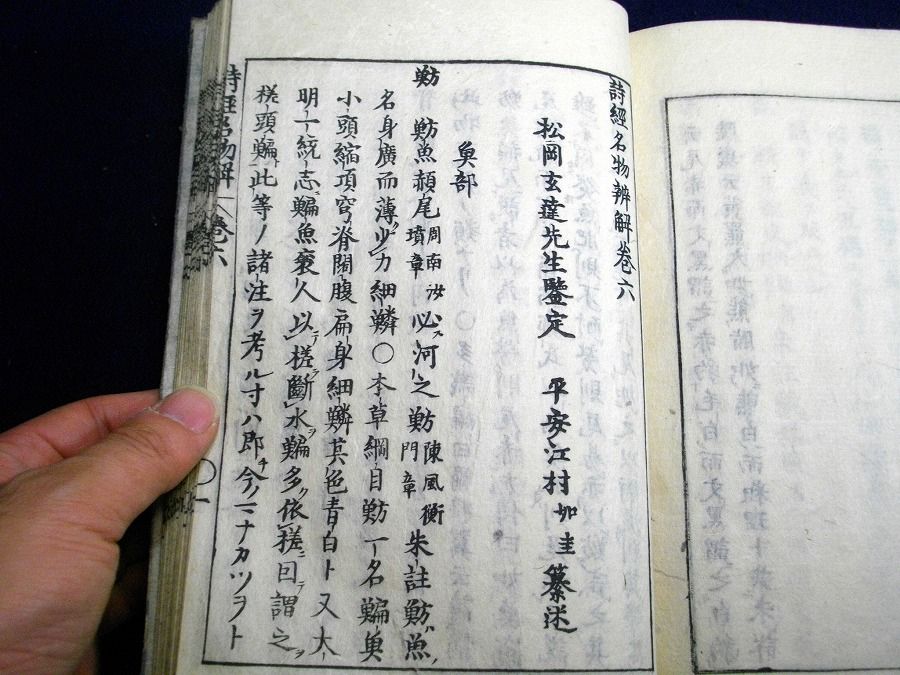 詩經名物辨解卷六
松岡玄達先生鑒定 平安江村如圭纂述
魚部
魴 魴魚赬尾周南汝墳章必河之魴陳風衡門章朱註魴魚ノ
名身廣而薄少力細鱗○本草綱目魴一名鯿魚
小頭縮項穹脊闊腹扁身細鱗其色青白ト又大
明一統志鯿魚襄人以槎斷水鯿多依槎曰謂之
槎頭鯿此等ノ諸注ヲ考ル寸ハ即今ニナカツヲト
詩經名物辨解 卷六
○一